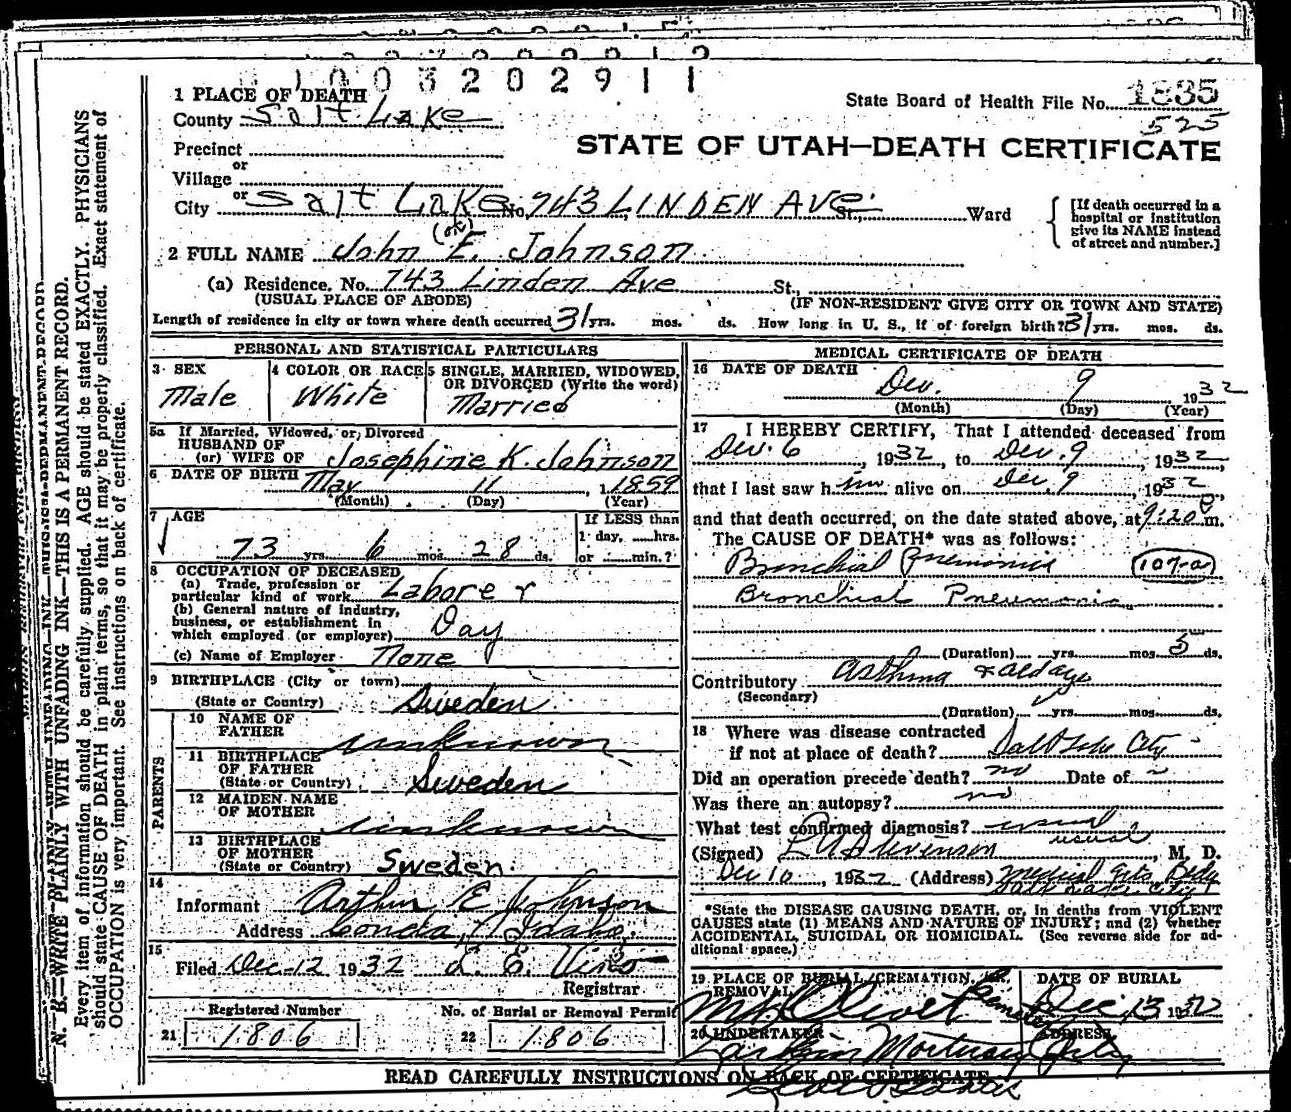 1003202911
1 PLACE OF DEATH
State Board of Health File No. 1835
County Salt Lake
525
STATE OF UTAH—DEATH CERTIFICATE
Precinct
or
Village
or
City Salt Lake No. 743 LINDEN AVE St., Ward
[If death occurred in a hospital or institution give its NAME instead of street and number.]
2 FULL NAME John (or) E. Johnson
(a) Residence. No. 743 Linden Ave St.,
(USUAL PLACE OF ABODE) (IF NON-RESIDENT GIVE CITY OR TOWN AND STATE)
Length of residence in city or town where death occurred 31 yrs. mos. ds. How long in U. S., if of foreign birth? 31 yrs. mos. ds.
PERSONAL AND STATISTICAL PARTICULARS
3 SEX
Male
4 COLOR OR RACE
White
5 SINGLE, MARRIED, WIDOWED, OR DIVORCED (Write the word)
Married
5a If Married, Widowed, or Divorced
HUSBAND OF
(or) WIFE OF Josephine K. Johnson
6 DATE OF BIRTH May 11, 1859
(Month) (Day) (Year)
7 AGE
73 yrs. 6 mos. 28 ds.
If LESS than
1 day, hrs.
or min.?
8 OCCUPATION OF DECEASED
(a) Trade, profession or
particular kind of work Laborer
(b) General nature of industry,
business, or establishment in
which employed (or employer) Day
(c) Name of Employer None
9 BIRTHPLACE (City or town)
(State or Country) Sweden
PARENTS
10 NAME OF
FATHER unknown
11 BIRTHPLACE
OF FATHER
(State or Country) Sweden
12 MAIDEN NAME
OF MOTHER unknown
13 BIRTHPLACE
OF MOTHER
(State or Country) Sweden.
14
Informant Arthur E Johnson
Address Conda, Idaho.
15
Filed Dec-12 1932
Registrar
Registered Number
21 1806
No. of Burial or Removal Permit
22 1806
MEDICAL CERTIFICATE OF DEATH
16 DATE OF DEATH
Dec. 9 1932
(Month) (Day) (Year)
17 I HEREBY CERTIFY, That I attended deceased from
Dec. 6, 1932, to Dec. 9, 1932,
that I last saw him alive on Dec. 9, 1932
and that death occurred, on the date stated above, at 9:20 P m.
The CAUSE OF DEATH* was as follows:
Bronchial Pneumonia (107-a)
Bronchial Pneumonia
(Duration) yrs. mos. 5 ds.
Contributory Asthma & old age
(Secondary)
(Duration) yrs. mos. ds.
18 Where was disease contracted
if not at place of death? Salt Lake City
Did an operation precede death? no Date of
Was there an autopsy? no
What test confirmed diagnosis? usual
usual
(Signed) Stevenson, M. D.
Dec 10, 1932 (Address) Medical Arts Bldg
Salt Lake City
*State the DISEASE CAUSING DEATH, or, in deaths from VIOLENT
CAUSES state (1) MEANS AND NATURE OF INJURY; and (2) whether
ACCIDENTAL, SUICIDAL OR HOMICIDAL. (See reverse side for ad-
ditional space.)
19 PLACE OF BURIAL, CREMATION, OR
REMOVAL
Mt Olivet Cemetery
DATE OF BURIAL
Dec. 13 1932
20 UNDERTAKER ADDRESS
Larkin Mortuary
READ CAREFULLY INSTRUCTIONS ON BACK OF CERTIFICATE
N. B.—WRITE PLAINLY WITH UNFADING INK—THIS IS A PERMANENT RECORD.
Every item of information should be carefully supplied. AGE should be stated EXACTLY. PHYSICIANS
should state CAUSE OF DEATH in plain terms, so that it may be properly classified. Exact statement of
OCCUPATION is very important. See instructions on back of certificate.